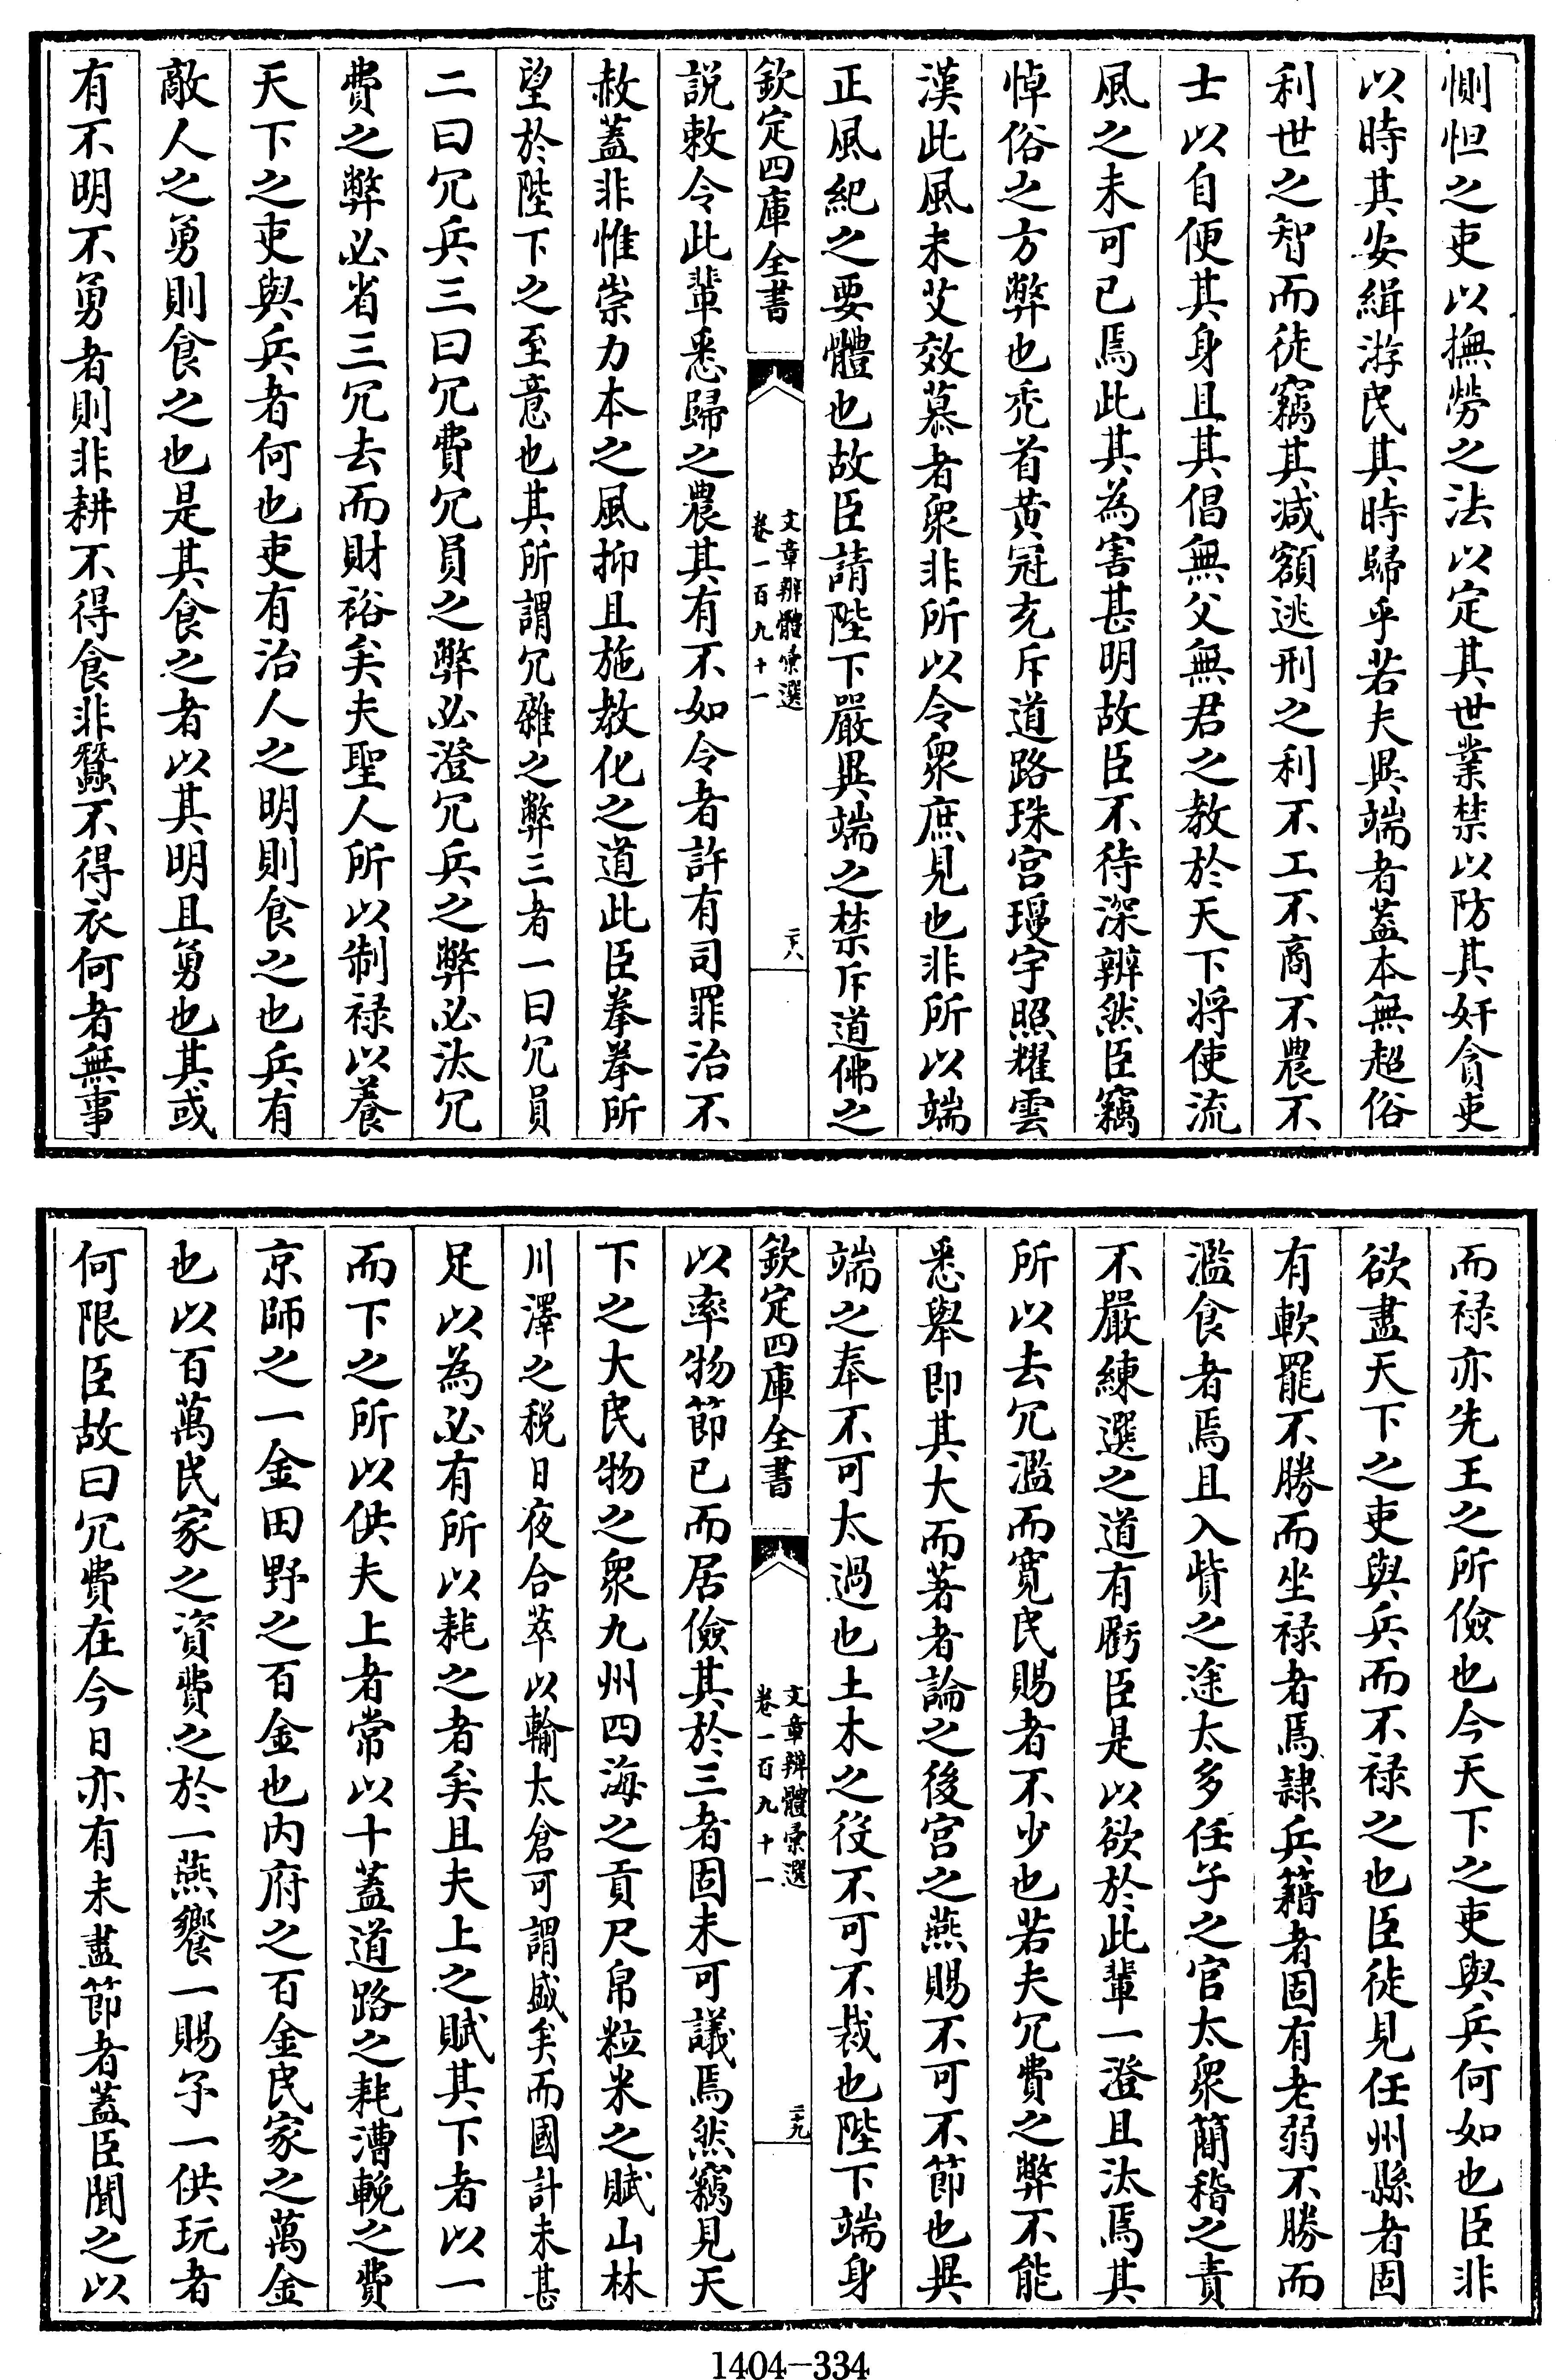 惻怛之吏以撫勞之法以定其世業禁以防其奸貪吏
以時其安緝游民其時歸乎若夫異端者蓋本無超俗
利世之智而徒竊其减額逃刑之利不工不商不農不
士以自便其身且其倡無父無君之教於天下將使流
風之未可已焉此其為害甚明故臣不待深辨然臣竊
悼俗之方弊也禿首黄冠充斥道路珠宫瓊宇照耀雲
漢此風未艾效慕者衆非所以令衆庶見也非所以端
正風紀之要體也故臣請陛下嚴異端之禁斥道佛之
欽定四庫全書
文章辨體彙選
卷一百九十一
二十八
說敕令此輩悉歸之農其有不如令者許有司罪治不
赦蓋非惟崇力本之風抑且施教化之道此臣拳拳所
望於陛下之至意也其所謂冗雜之弊三者一曰冗員
二曰冗兵三曰冗費冗員之弊必澄冗兵之弊必汰冗
費之弊必省三冗去而財裕矣夫聖人所以制禄以養
天下之吏與兵者何也吏有治人之明則食之也兵有
敵人之勇則食之也是其食之者以其明且勇也其或
有不明不勇者則非耕不得食非蠶不得衣何者無事
而禄亦先王之所儉也今天下之吏與兵何如也臣非
欲盡天下之吏與兵而不禄之也臣徒見任州縣者固
有軟罷不勝而坐禄者焉隷兵籍者固有老弱不勝而
濫食者焉且入貲之途太多任子之官太衆簡稽之責
不嚴練選之道有虧臣是以欲於此輩一澄且汰焉其
所以去冗濫而寛民賜者不少也若夫冗費之弊不能
悉舉即其大而著者論之後宫之燕賜不可不節也異
端之奉不可太過也土木之役不可不裁也陛下端身
欽定四庫全書
文章辨體彙選
卷一百九十一
二十九
以率物節已而居儉其於三者固未可議焉然竊見天
下之大民物之衆九州四海之貢尺帛粒米之賦山林
川澤之税日夜合萃以輸太倉可謂盛矣而國計未甚
足以為必有所以耗之者矣且夫上之賦其下者以一
而下之所以供夫上者常以十蓋道路之耗漕輓之費
京師之一金田野之百金也内府之百金民家之萬金
也以百萬民家之資費之於一燕饗一賜予一供玩者
何限臣故曰冗費在今日亦有未盡節者蓋臣聞之以
1404-334